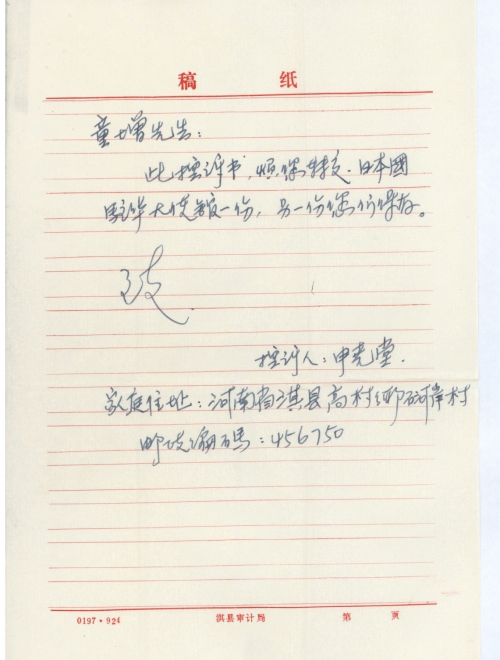 稿 纸
童增先生：
此控诉书，烦您转交．日本國
驻华大使馆一份，另一份您们保存。
致
控诉人：申尧堂．
家庭住址：河南省淇县高村乡石河岸村
邮政编码：456750
0197·924 淇县审计局 第 页